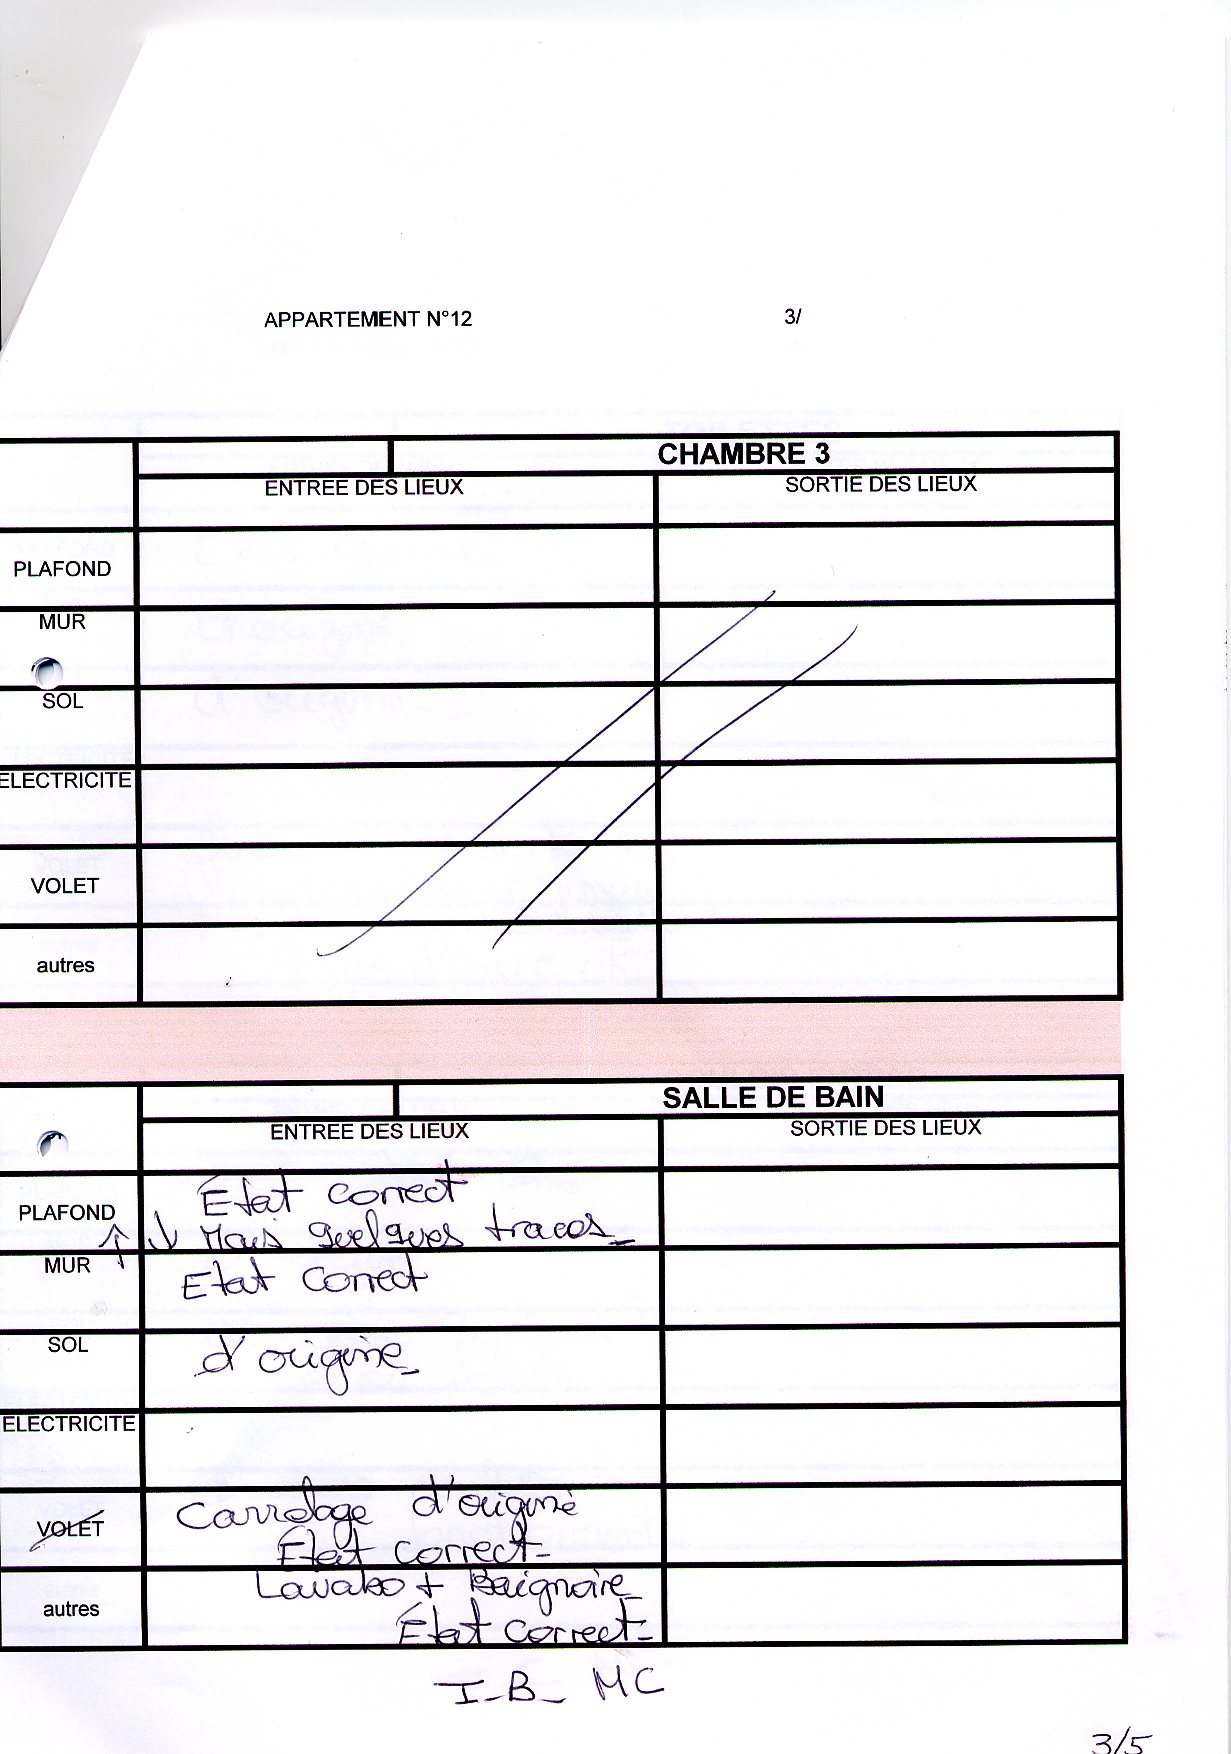 APPARTEMENT N°12 3/
CHAMBRE 3
ENTREE DES LIEUX SORTIE DES LIEUX
PLAFOND
MUR
SOL
ELECTRICITE
VOLET
autres
SALLE DE BAIN
ENTREE DES LIEUX SORTIE DES LIEUX
État correct
PLAFOND
↑ ↓ Mais quelques traces_
MUR Etat correct
SOL d'origine_
ELECTRICITE
Carrelage d'origine
VOLET
État correct_
Lavabo + Baignoire
autres
État correct_
I_B_ MC
3/5